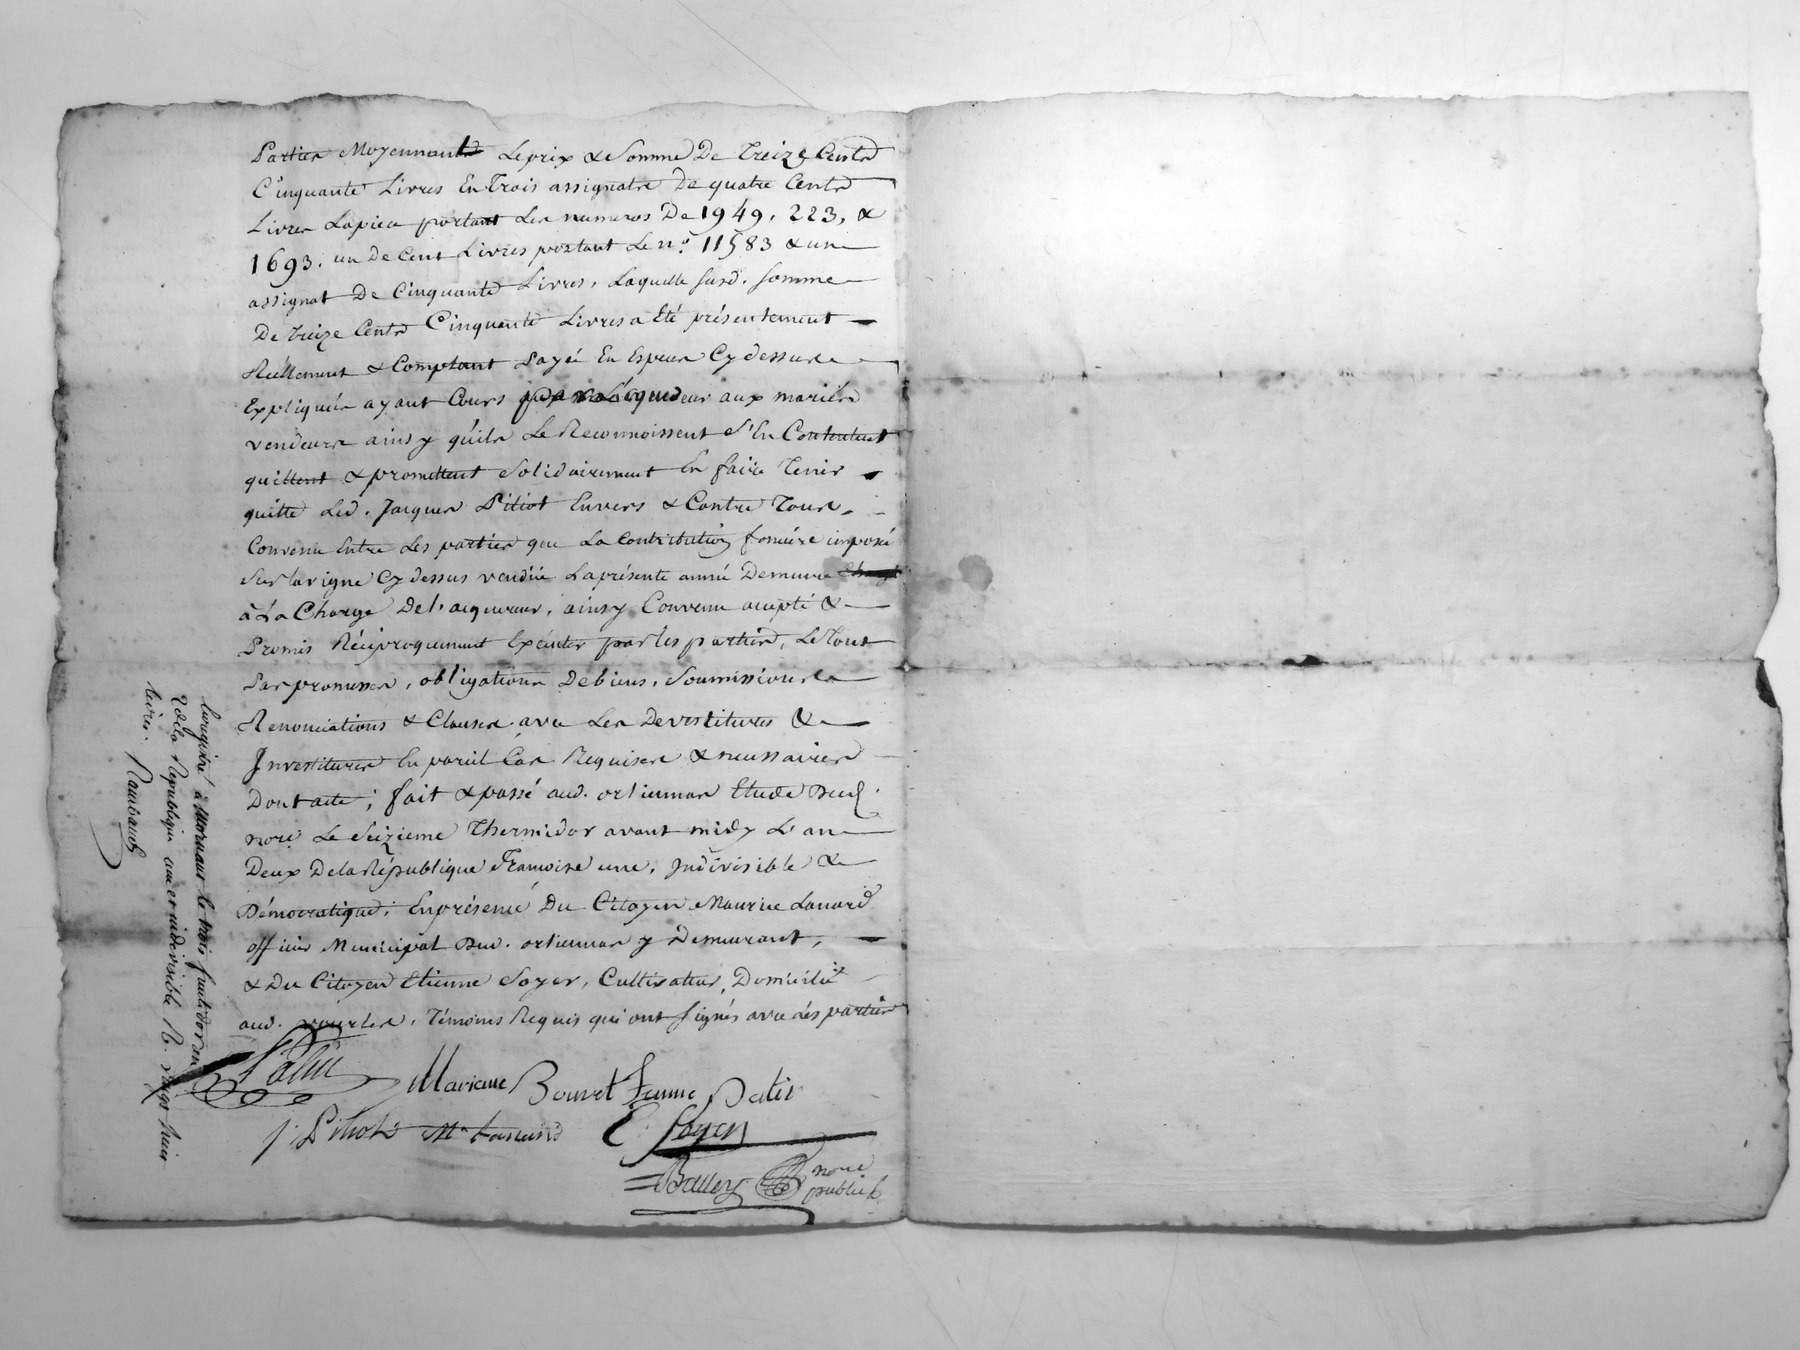 Parties Moyennant Le prix & Somme De Treize Cents
Cinquante Livres En Trois assignats De quatre Cents
Livres La piece portant Les numeros De 1949, 223, &
1693. un De Cent Livres portant Le n.º 11583 & un
assignat De Cinquante Livres, Laquelle susd. somme
De treize Cents Cinquante Livres a Eté présentement
Réellement & Comptant Payée En Especes Cy dessus
Expliquées ayant Cours par L'acquereur aux mariés
vendeurs ainsy qu'ils Le Reconnoissent S'En Contentent
quittent & promettent Solidairement En faire Tenir
quitte Led. Jacques Pitiot Envers & Contre Tous.
Convenu Entre Les parties que La Contribution fonciére imposé
Sur la vigne Cy dessus vendüe La présente année Demeure
à La Charge De l'acquereur, ainsy Convenu accepté &
Promis Réciproquement Exécuter par les parties, Le Tout
Par promesses, obligations De biens, Soumissions
Renonciations & Clauses avec Les Devestitures &
Investitures En pareil Cas Requises & necessaires
Dont acte; fait & passé aud. orliennas Etude Dud.
nore. Le Seizieme Thermidor avant midy L'an
Deux De la République Francoise une, Indivisible &
Démocratique. En présence Du Citoyen Maurice Lanard
officier Municipal Dud. orliennas y Demeurant,
& Du Citoyen Etienne Soyer, Cultivateur, Domicilié
aud. Témoins Requis qui ont signés avec Les parties
Marianne Bouvet femme
J. Pitiot
E. Soyer
nore
public
Enregistré à Mornant le trois fructidor an
2 de la Republique une et indivisible R.
livres. Raimbaud